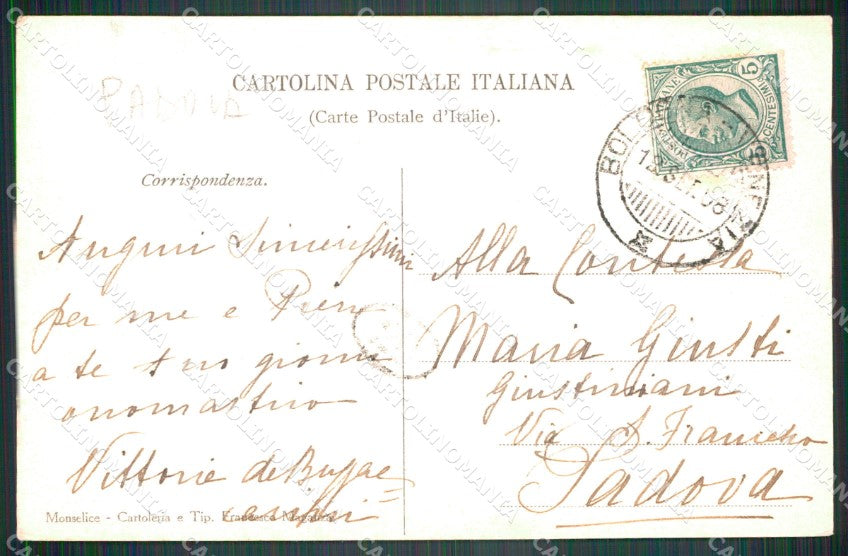 PADOVA
CARTOLINA POSTALE ITALIANA
(Carte Postale d'Italie).
POSTE ITALIANE
5
CENTESIMI
5
BOLOGNA VENEZIA
12
08
Corrispondenza.
Auguri sincerissimi
per me e Piero
a te suo giorno
onomastico
Vittoria de
Alla Contessa
Maria Giusti
Giustiniani
Via S. Francesco
Padova
Monselice - Cartoleria e Tip. Francesco
CARTOLINOMANIA